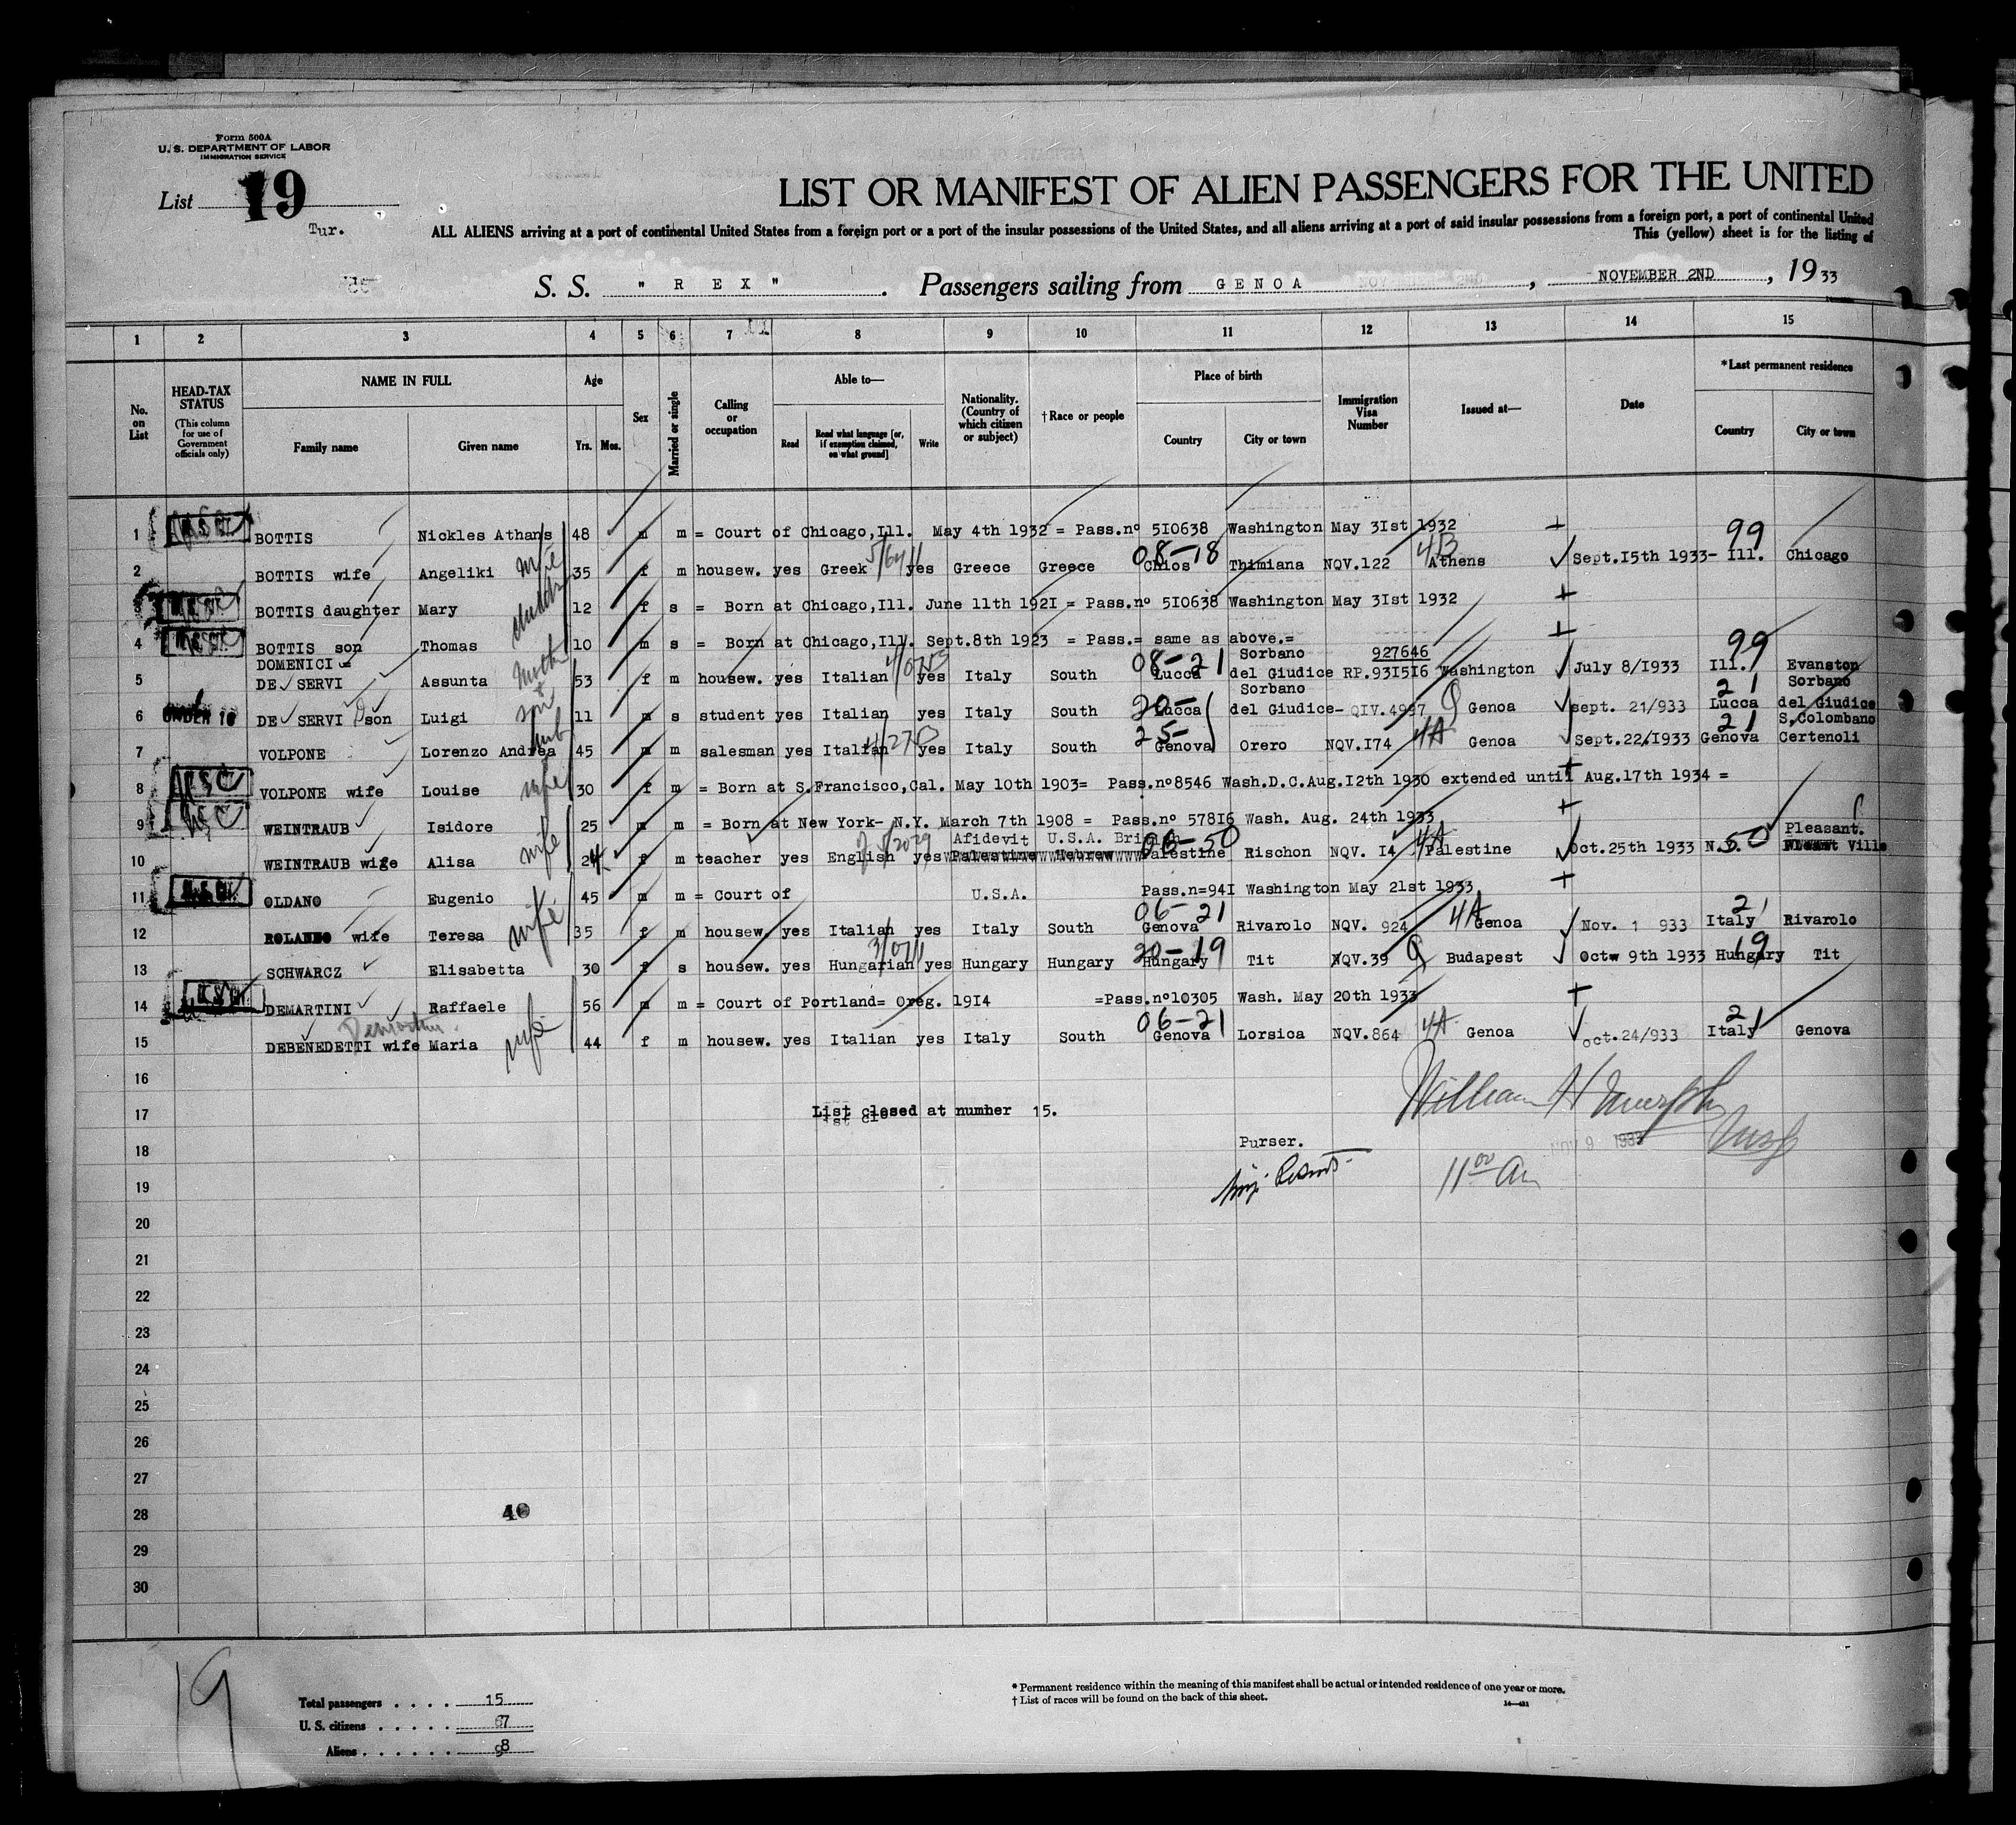 Form 500A
U. S. DEPARTMENT OF LABOR
IMMIGRATION SERVICE
List 19
Tur.
LIST OR MANIFEST OF ALIEN PASSENGERS FOR THE UNITED
ALL ALIENS arriving at a port of continental United States from a foreign port or a port of the insular possessions of the United States, and all aliens arriving at a port of said insular possessions from a foreign port, a port of continental United
This (yellow) sheet is for the listing of
S. S. " R E X " . Passengers sailing from G E N O A , NOVEMBER 2ND , 1933
1 2 3 4 5 6 7 8 9 10 11 12 13 14 15
No. on List
HEAD-TAX STATUS
(This column for use of Government officials only)
NAME IN FULL
Family name Given name
Age
Yrs. Mos.
Sex
Married or single
Calling or occupation
Able to—
Read
Read what language [or, if exemption claimed, on what ground]
Write
Nationality. (Country of which citizen or subject)
† Race or people
Place of birth
Country City or town
Immigration Visa Number
Issued at—
Date
*Last permanent residence
Country City or town
1 BOTTIS Nickles Athans 48 m m = Court of Chicago,Ill. May 4th 1932 = Pass.nº 5I0638 Washington May 3Ist 1932 99
2 BOTTIS wife Angeliki wife 35 f m housew. yes Greek yes Greece Greece Chios 08-18 Thimiana NQV.122 4B Athens Sept.I5th 1933- Ill. Chicago
3 BOTTIS daughter Mary 12 f s = Born at Chicago,Ill. June 11th 192I = Pass.nº 5I0638 Washington May 3Ist 1932
4 BOTTIS son Thomas 10 m s = Born at Chicago,Ill. Sept.8th 1923 = Pass.= same as above.= 99
DOMENICI = Sorbano 927646
5 DE SERVI Assunta Mother 53 f m housew. yes Italian yes Italy South Lucca 08-21 del Giudice RP.93I5I6 Washington July 8/1933 Ill. Evanston
Sorbano 21 Sorbano
6 UNDER 16 DE SERVI son Luigi son 11 m s student yes Italian yes Italy South Lucca 20- del Giudice- QIV.4997 Genoa sept. 21/933 Lucca del Giudice
21 S.Colombano
7 VOLPONE Lorenzo Andrea 45 m m salesman yes Italian yes Italy South Genova 25- Orero NQV.I74 4A Genoa Sept.22/1933 Genova Certenoli
8 VOLPONE wife Louise wife 30 f m = Born at S.Francisco,Cal. May 10th 1903= Pass.nº8546 Wash.D.C.Aug.I2th 1930 extended until Aug.17th 1934 =
9 WEINTRAUB Isidore 25 m m = Born at New York- N.Y. March 7th 1908 = Pass.nº 578I6 Wash. Aug. 24th 1933
Afidevit U.S.A. British Pleasant.
10 WEINTRAUB wife Alisa wife 24 f m teacher yes English yes Palestine Hebrew Palestine 06-50 Rischon NQV. I4 4A Palestine Oct.25th 1933 N. 50 Ville
11 OLDANO Eugenio 45 m m = Court of U.S.A. Pass.n=94I Washington May 21st 1933
12 wife Teresa wife 35 f m housew. yes Italian yes Italy South Genova 06-21 Rivarolo NQV. 924 4A Genoa Nov. 1 933 Italy 21 Rivarolo
13 SCHWARCZ Elisabetta 30 f s housew. yes Hungarian yes Hungary Hungary Hungary 20-19 Tit NQV.39 Budapest Octw 9th 1933 Hungary 19 Tit
14 DEMARTINI Raffaele 56 m m = Court of Portland= Oreg. 19I4 =Pass.nº10305 Wash. May 20th 1933
15 DEBENEDETTI wife Maria wife 44 f m housew. yes Italian yes Italy South Genova 06-21 Lorsica NQV.864 4A Genoa oct.24/933 Italy 21 Genova
16
17 List closed at number 15.
William H Murphy
Purser.
NOV 9 1933
18
11 00 Am
19
20
21
22
23
24
25
26
27
28
29
30
19
Total passengers . . . . 15
U. S. citizens . . . . . 7
Aliens . . . . . . 8
* Permanent residence within the meaning of this manifest shall be actual or intended residence of one year or more.
† List of races will be found on the back of this sheet.